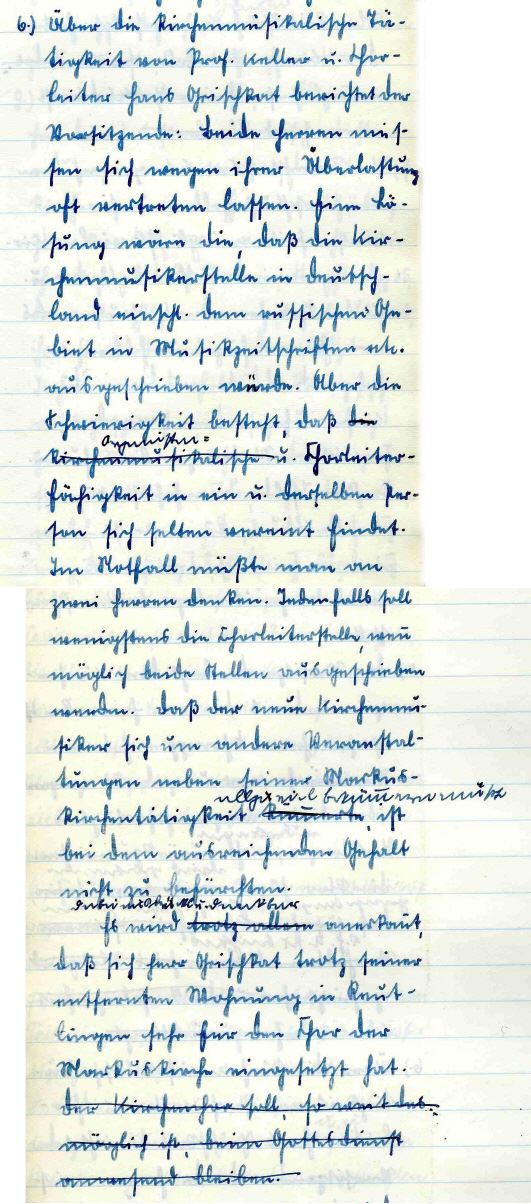 6.) Über die kirchenmusikalische Tä-
tigkeit von Prof. Keller u. Chor-
leiter Hans Grischkat berichtet der
Vorsitzende: Beide Herren müs-
sen sich wegen ihrer Überlastung
oft vertreten lassen. Eine Lö-
sung wäre die, daß die Kir-
chenmusikerstelle in Deutsch-
land einschl. dem russischen Ge-
biet in Musikzeitschriften etc.
ausgeschrieben würde. Aber die
Schwierigkeit besteht, daß die
Organisten-
kirchenmusikalische u. Chorleiter-
fähigkeit in ein u. derselben Per-
son sich selten vereint findet.
Im Notfall müßte man an
zwei Herren denken. Jedenfalls soll
wenigstens die Chorleiterstelle, wenn
möglich beide Stellen ausgeschrieben
werden. Daß der neue Kirchenmu-
siker sich um andere Veranstal-
tungen neben seiner Markus-
allzuviel bekümmern müßte
kirchentätigkeit kümmerte, ist
bei dem ausreichenden Gehalt
nicht zu befürchten.
dankbar
Es wird trotz allem anerkannt,
daß sich Herr Grischkat trotz seiner
entfernten Wohnung in Reut-
lingen sehr für den Chor der
Markuskirche eingesetzt hat.
Der Kirchenchor soll, so weit das
möglich ist, beim Gottesdienst
anwesend bleiben.